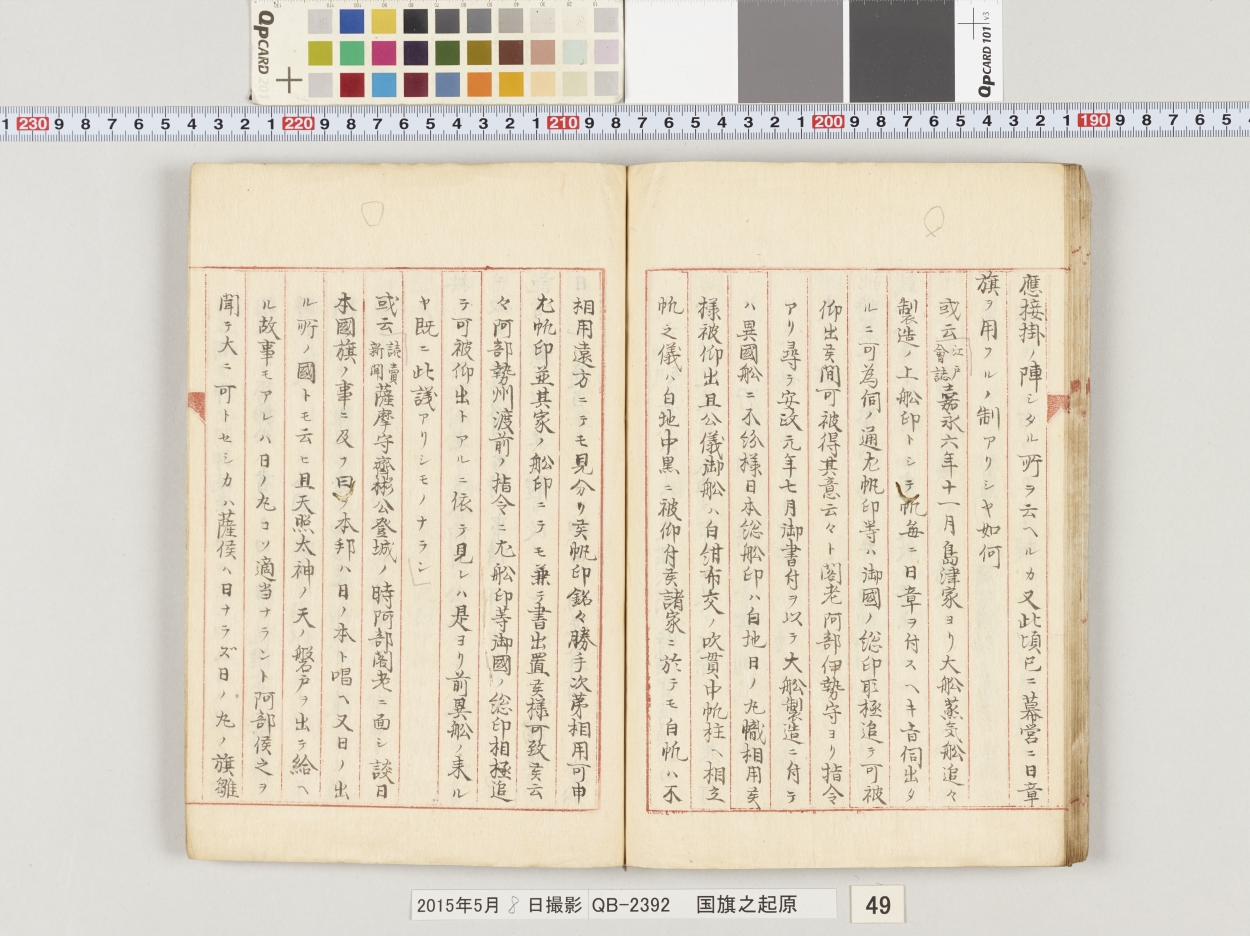 QPCARD 101 v3
1 230 9 8 7 6 5 4 3 2 1 220 9 8 7 6 5 4 3 2 1 210 9 8 7 6 5 4 3 2 1 200 9 8 7 6 5 4 3 2 1 190 9 8 7 6 5
應接掛ノ陣シタル所ヲ云ヘルカ又此頃已ニ幕営ニ日章
旗ヲ用フルノ制アリシヤ如何
或云江戸會誌嘉永六年十一月島津家ヨリ大船蒸気船追々
製造ノ上船印トシテ帆毎ニ日章ヲ付スヘキ旨伺出タ
ルニ可為伺ノ通尤帆印等ハ御國ノ総印取極追テ可被
仰出矦間可被得其意云々ト閣老阿部伊勢守ヨリ指令
アリ尋テ安政元年七月御書付ヲ以テ大船製造ニ付テ
ハ異國船ニ不紛様日本総船印ハ白地日ノ丸幟相用矦
様被仰出且公儀御船ハ白紺布交ノ吹貫中帆柱ヘ相立
帆之儀ハ白地中黒ニ被仰付矦諸家ニ於テモ白帆ハ不
相用遠方ニテモ見分リ矦帆印銘々勝手次第相用可申
尤帆印並其家ノ船印ニテモ兼テ書出置矦様可致矦云
々阿部勢州渡前ノ指令ニ尤船印等御國ノ総印相極追
テ可被仰出トアルニ依テ見レハ是ヨリ前異船ノ来ル
ヤ既ニ此議アリシモノナラン
或云読賣新聞薩摩守齊彬公登城ノ時阿部閣老ニ面シ談日
本國旗ノ事ニ及フ曰ク本邦ハ日ノ本ト唱ヘ又日ノ出
ル所ノ國トモ云ヒ且天照太神ノ天ノ磐戸ヲ出テ給ヘ
ル故事モアレハ日ノ丸コソ適当ナラント阿部侯之ヲ
聞テ大ニ可トセシカハ薩侯ハ日ナラズ日ノ丸ノ旗雛
2015年5月8日撮影 QB-2392 国旗之起原
49